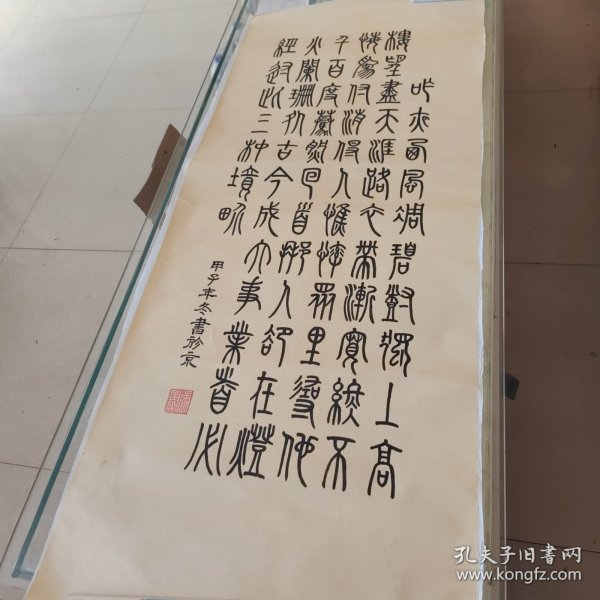 昨夜西風凋碧樹獨上高
樓望盡天涯路衣帶漸寬終不
悔為伊消得人憔悴眾里尋他
千百度驀然回首那人卻在燈
火闌珊處古今成大事業者必
經過此三種境界
甲子年冬書於京
孔夫子旧书网
www.kongfz.com